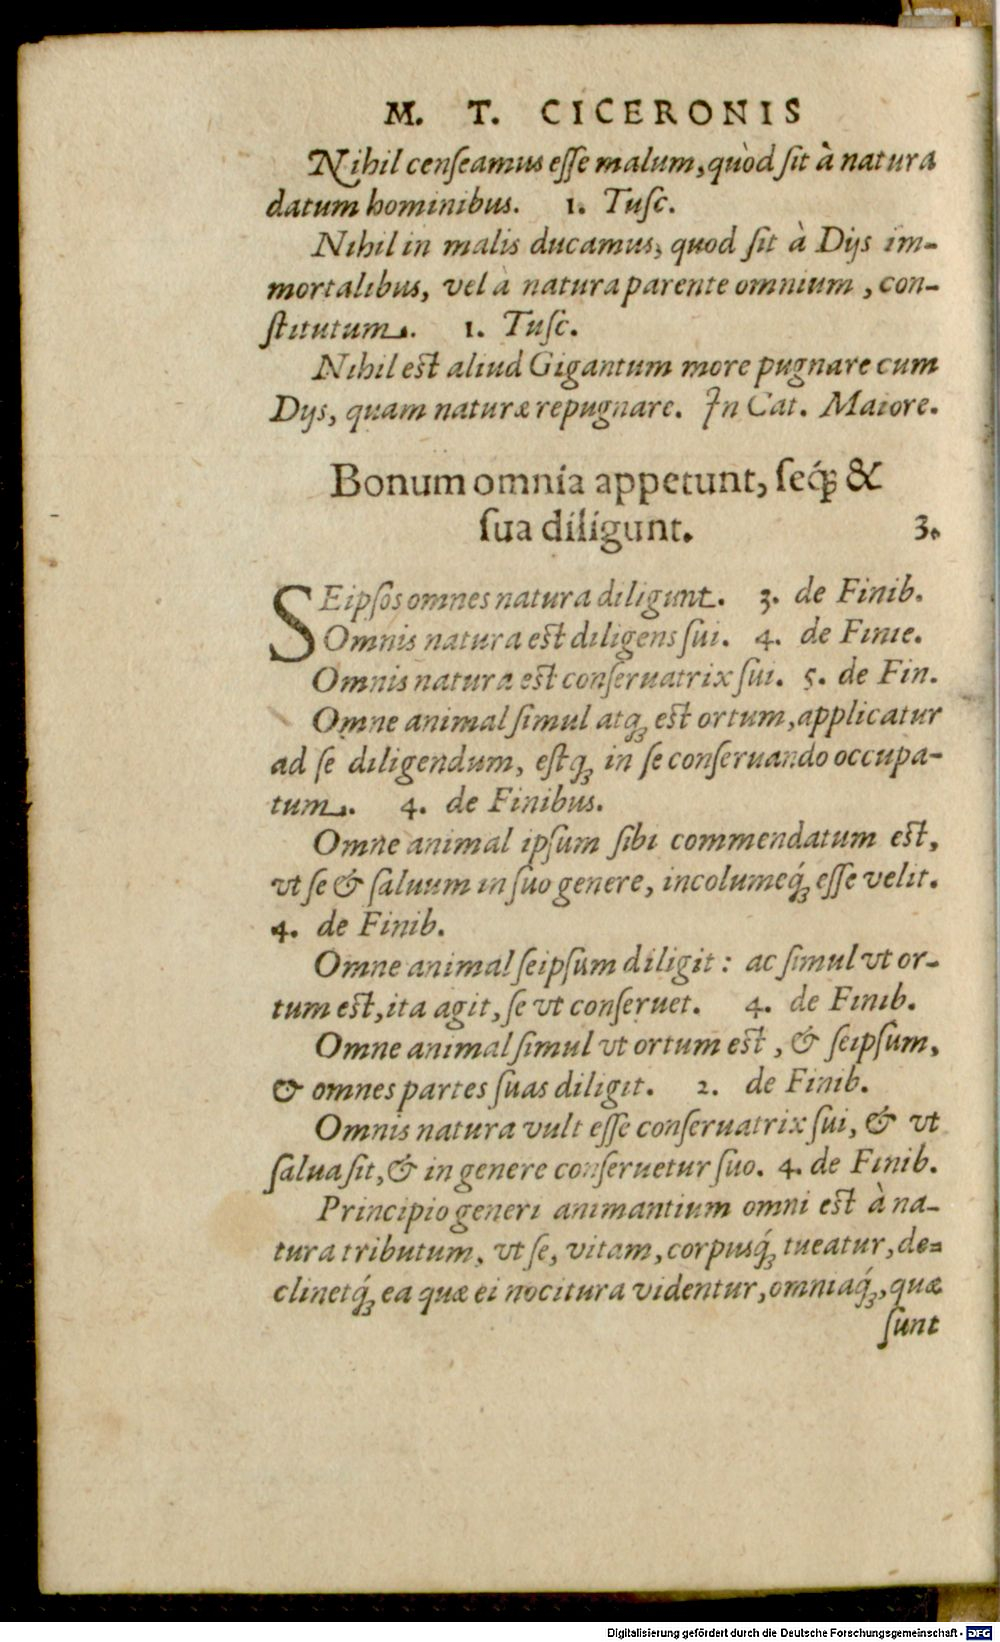 M. T. CICERONIS
Nihil censeamus esse malum, quòd sit à natura
datum hominibus. 1. Tusc.
Nihil in malis ducamus, quod sit à Dijs im-
mortalibus, vel à natura parente omnium, con-
stitutum. 1. Tusc.
Nihil est aliud Gigantum more pugnare cum
Dijs, quam naturæ repugnare. In Cat. Maiore.
Bonum omnia appetunt, seq́ꝫ &
sua diligunt. 3.
SEipsos omnes natura diligunt. 3. de Finib.
Omnis natura est diligens sui. 4. de Finie.
Omnis natura est conseruatrix sui. 5. de Fin.
Omne animal simul atqꝫ est ortum, applicatur
ad se diligendum, estqꝫ in se conseruando occupa-
tum. 4. de Finibus.
Omne animal ipsum sibi commendatum est,
vt se & saluum in suo genere, incolumeq́ꝫ esse velit.
4. de Finib.
Omne animal seipsum diligit: ac simul vt or-
tum est, ita agit, se vt conseruet. 4. de Finib.
Omne animal simul vt ortum est, & seipsum,
& omnes partes suas diligit. 2. de Finib.
Omnis natura vult esse conseruatrix sui, & vt
salua sit, & in genere conseruetur suo. 4. de Finib.
Principio generi animantium omni est à na-
tura tributum, vt se, vitam, corpusq́ꝫ tueatur, de-
clinetq́ꝫ ea quæ ei nocitura videntur, omniaq́ꝫ, quæ
sunt
Digitalisierung gefördert durch die Deutsche Forschungsgemeinschaft - DFG